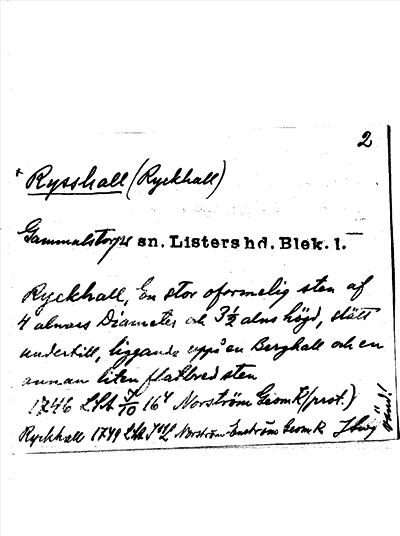 2
* Rysshall (Ryckhall)
Gammalstorps sn. Listers hd. Blek. l.
Ryckhall, En stor oformelig sten af
4 alnars Diameter och 3 1/2 alns högd, slätt
undertill, liggande uppå en Berghall och en
annan liten flatbred sten
1746 LSA 16 Norström Geom K (prot.)
Ryckhall 1749 LSA Norström Enström Geom K